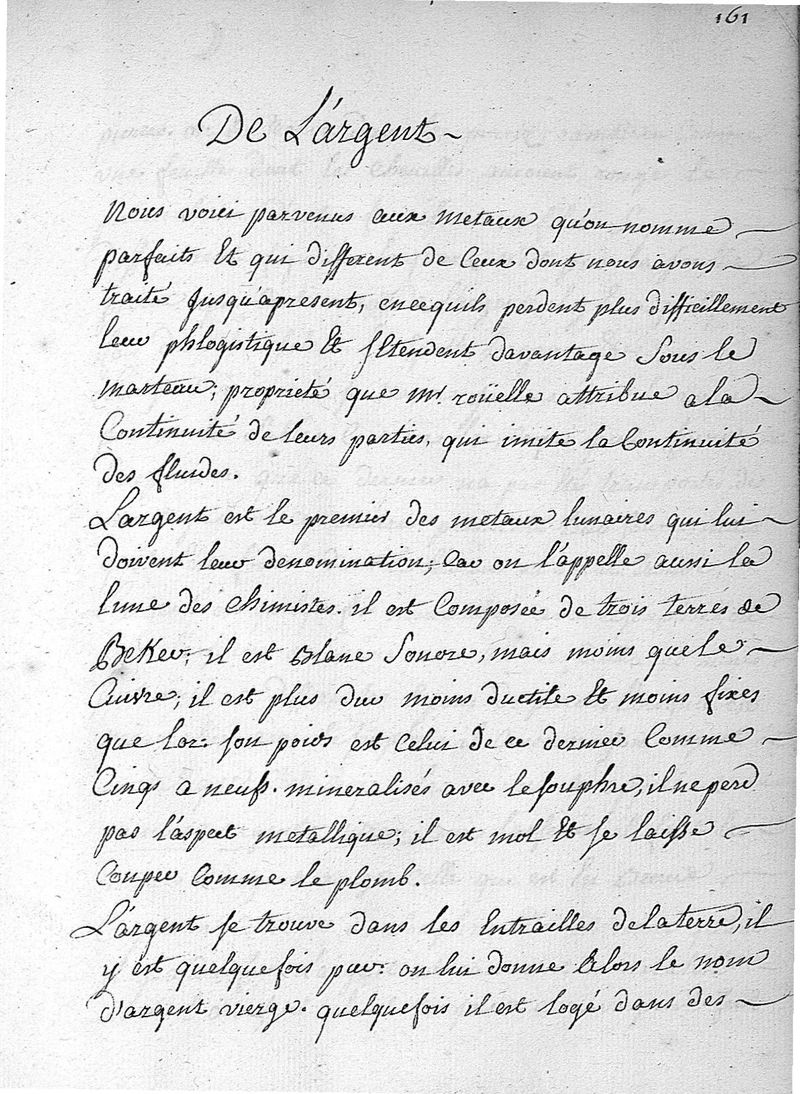 161
De L'argent ~
Nous voici parvenus aux metaux qu'on nomme
parfaits Et qui different de Ceux dont nous avons
traité Jusqu'apresent, encequils perdent plus difficillement
leur phlogistique Et s'Etendent davantage Sous le
marteau; proprieté que mr. roüelle attribue a la
Continuité de leurs parties, qui imite la Continuité
des fluides.
L'argent est le premier des metaux lunaires qui lui
doivent leur denomination; Car on l'appelle aussi la
lune des Chimistes. il est Composée de trois terres de
Beker; il est Blanc Sonore, mais moins que le
Cuivre; il est plus dur moins ductile Et moins fixes
que l'or. son poids est Celui de ce dernier Comme
Cinqs a neufs. mineralisés avec le souphre, il ne perd
pas l'aspect metallique; il est mol Et se laisse
Couper Comme le plomb.
L'argent se trouve dans les Entrailles de la terre, il
y est quelquefois pur. on lui donne Alors le nom
d'argent vierge. quelquefois il est logé dans des